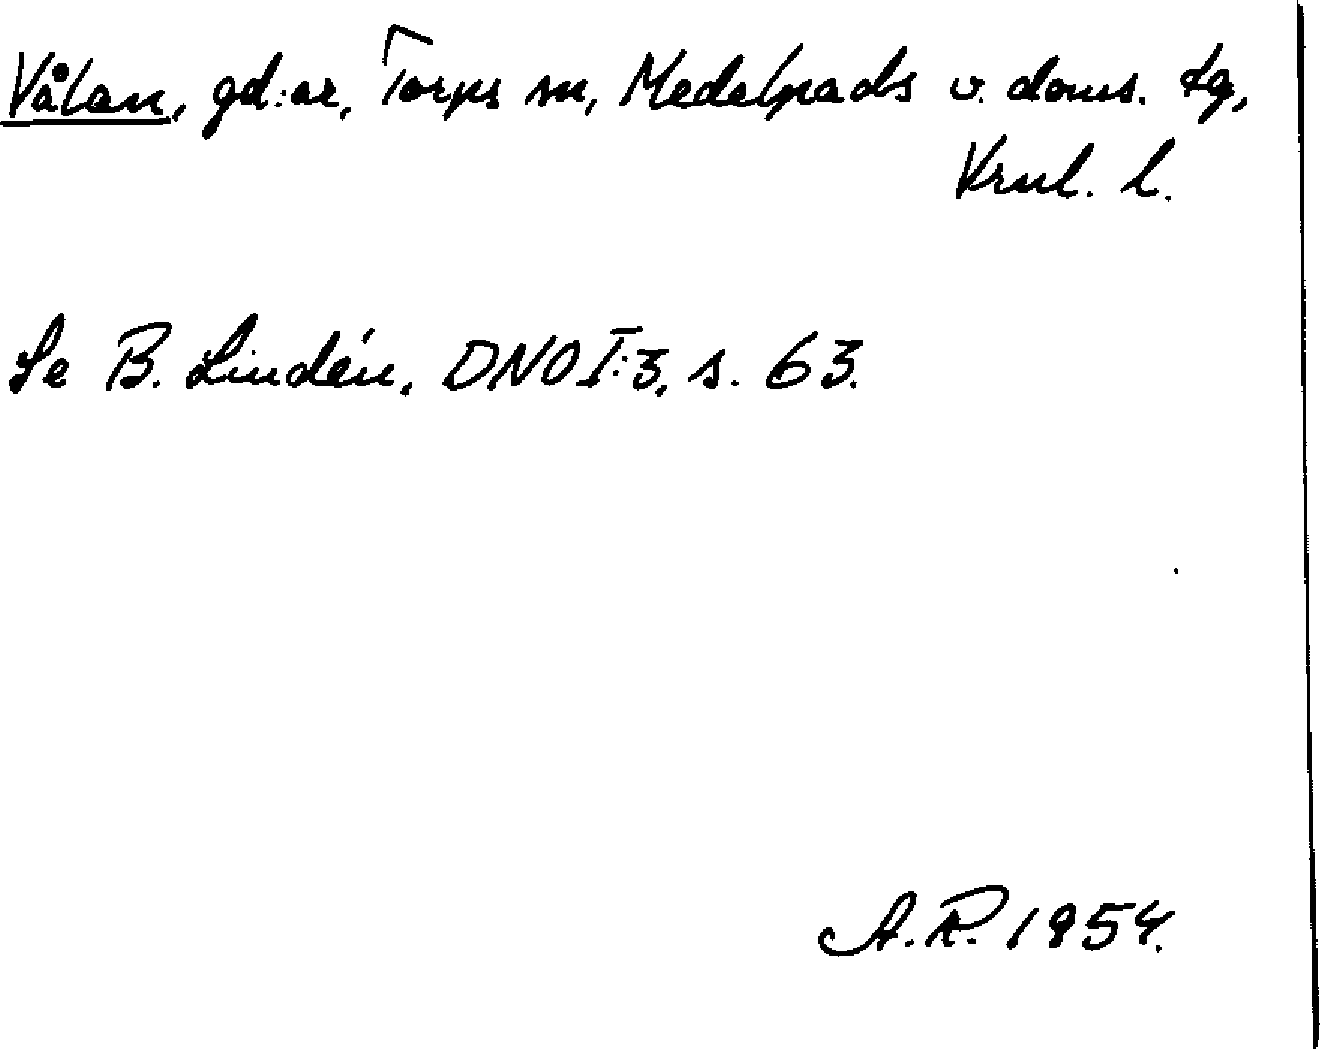 Vålan, gd:ar, Torps sn, Medelpads v. doms. tg,
Vrnl. l.
Se B. Lindén, DNO I:3, s. 63.
A.R. 1954.